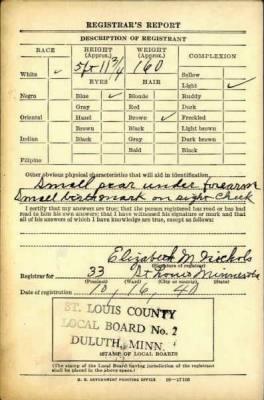 REGISTRAR'S REPORT
DESCRIPTION OF REGISTRANT
RACE HEIGHT (Approx.) WEIGHT (Approx.) COMPLEXION
White ✓ 5 ft 11 3/4 160 Sallow
EYES HAIR Light ✓
Negro Blue ✓ Blonde Ruddy
Gray Red Dark
Oriental Hazel Brown ✓ Freckled
Brown Black Light brown
Indian Black Gray Dark brown
Bald Black
Filipino
Other obvious physical characteristics that will aid in identification
Small scar under forearm
Small birthmark on right cheek
I certify that my answers are true; that the person registered has read or has had
read to him his own answers; that I have witnessed his signature or mark and that
all of his answers of which I have knowledge are true, except as follows:
Elizabeth M. Nichols
(Signature of registrar)
Registrar for 33 St Louis Minnesota
(Precinct) (Ward) (City or county) (State)
Date of registration 10, 16, 40
ST. LOUIS COUNTY
LOCAL BOARD No. 2
DULUTH, MINN.
(STAMP OF LOCAL BOARD)
(The stamp of the Local Board having jurisdiction of the registrant
shall be placed in the above space.)
U. S. GOVERNMENT PRINTING OFFICE 16—17105